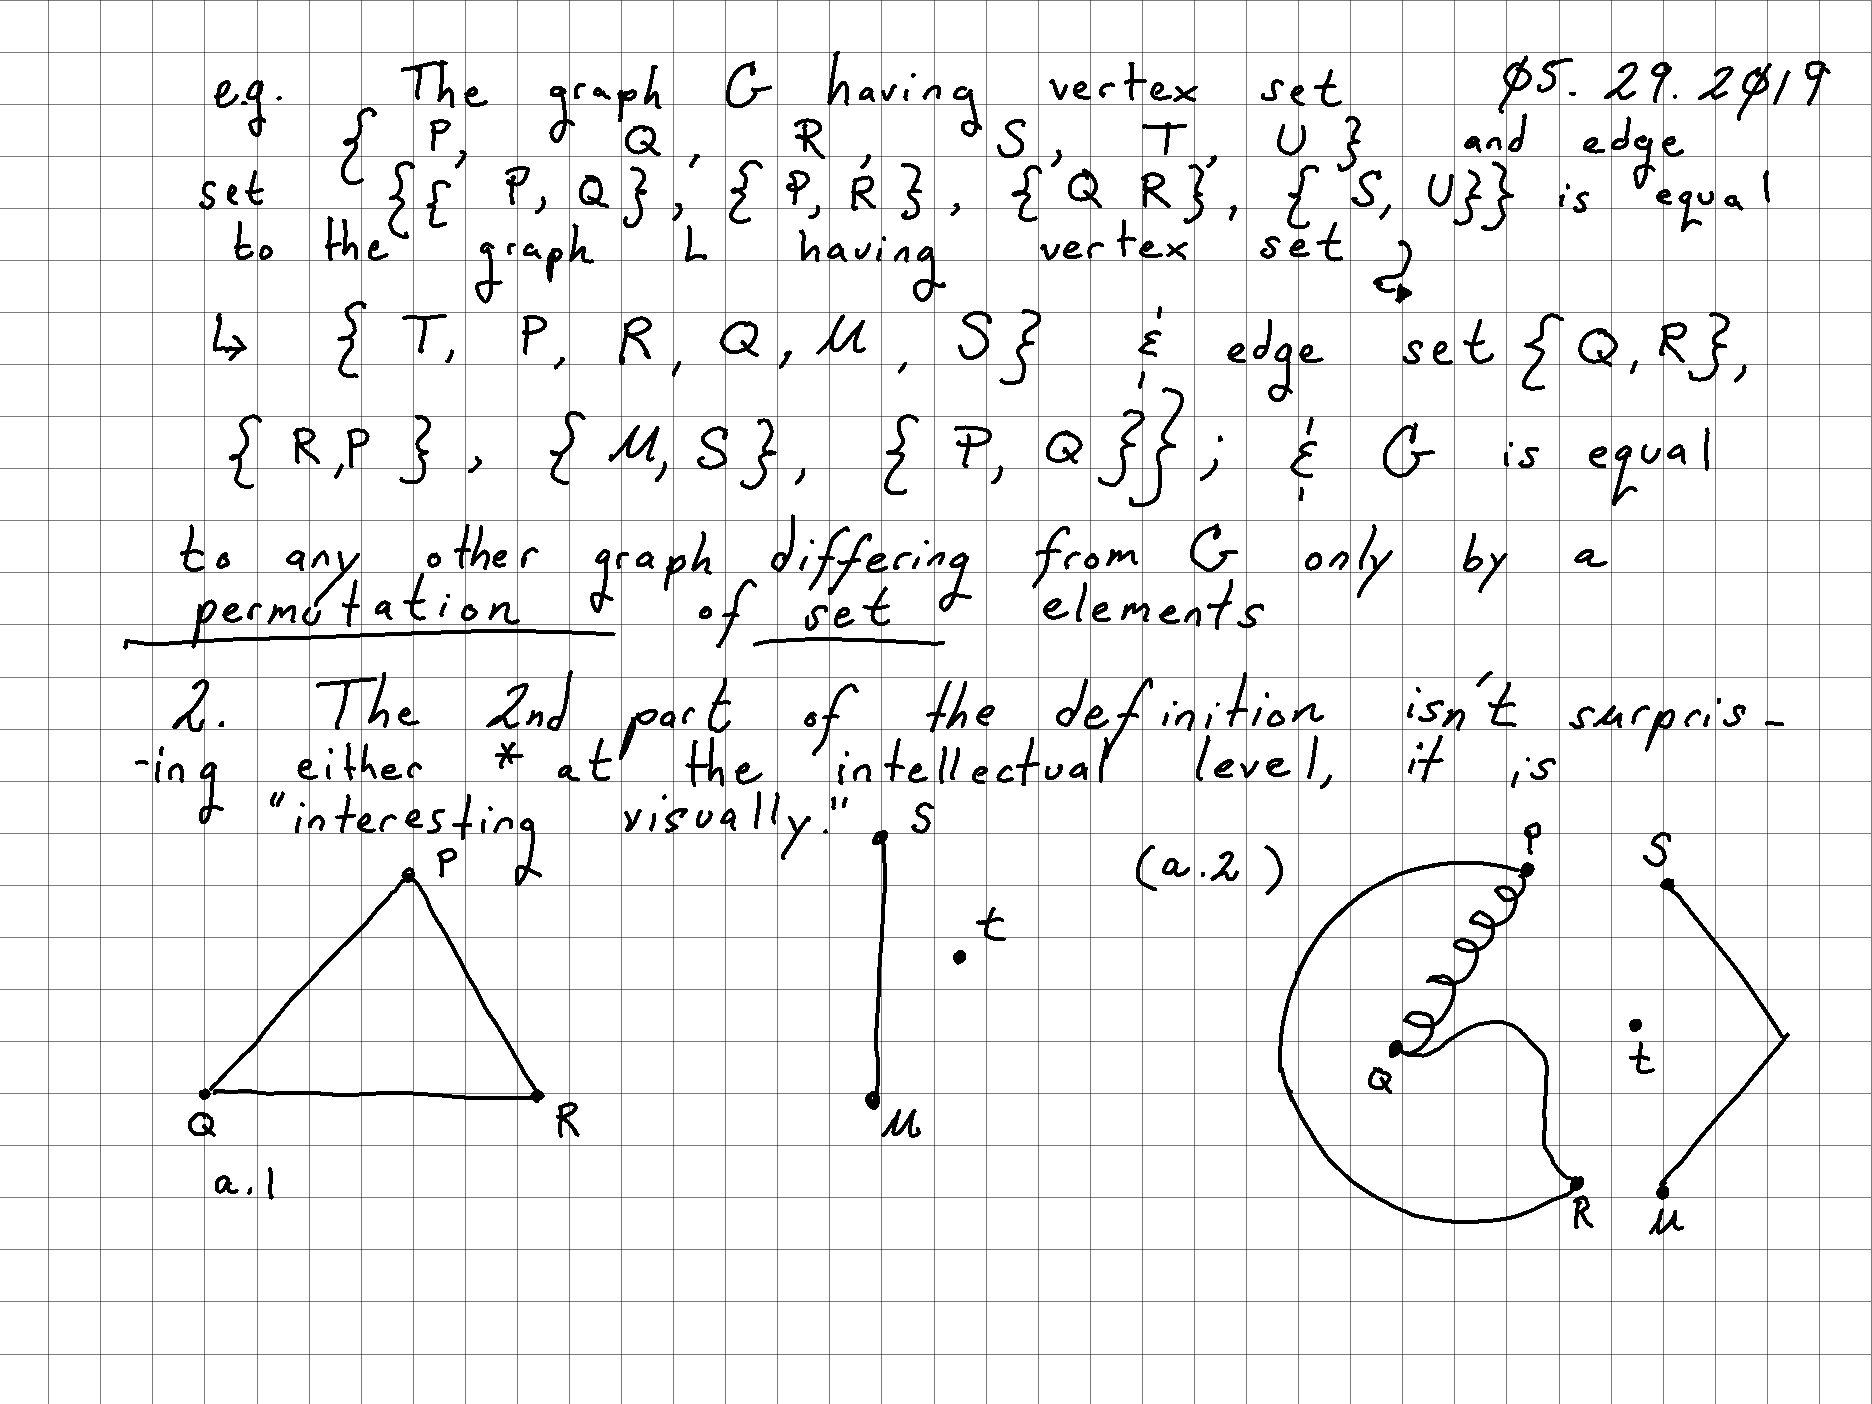 e.g. The graph G having vertex set 05.29.2019
{ P, Q, R, S, T, U } and edge
set {{ P, Q }, { P, R }, { Q R }, { S, U }} is equal
to the graph L having vertex set
↳ { T, P, R, Q, U, S } & edge set { Q, R },
{ R, P }, { U, S }, { P, Q }}; & G is equal
to any other graph differing from G only by a
permutation of set elements
2. The 2nd part of the definition isn't surpris-
-ing either * at the intellectual level, it is
"interesting visually."
S
P
(a.2)
P
S
t
t
Q
Q
R
U
a.1
R
U